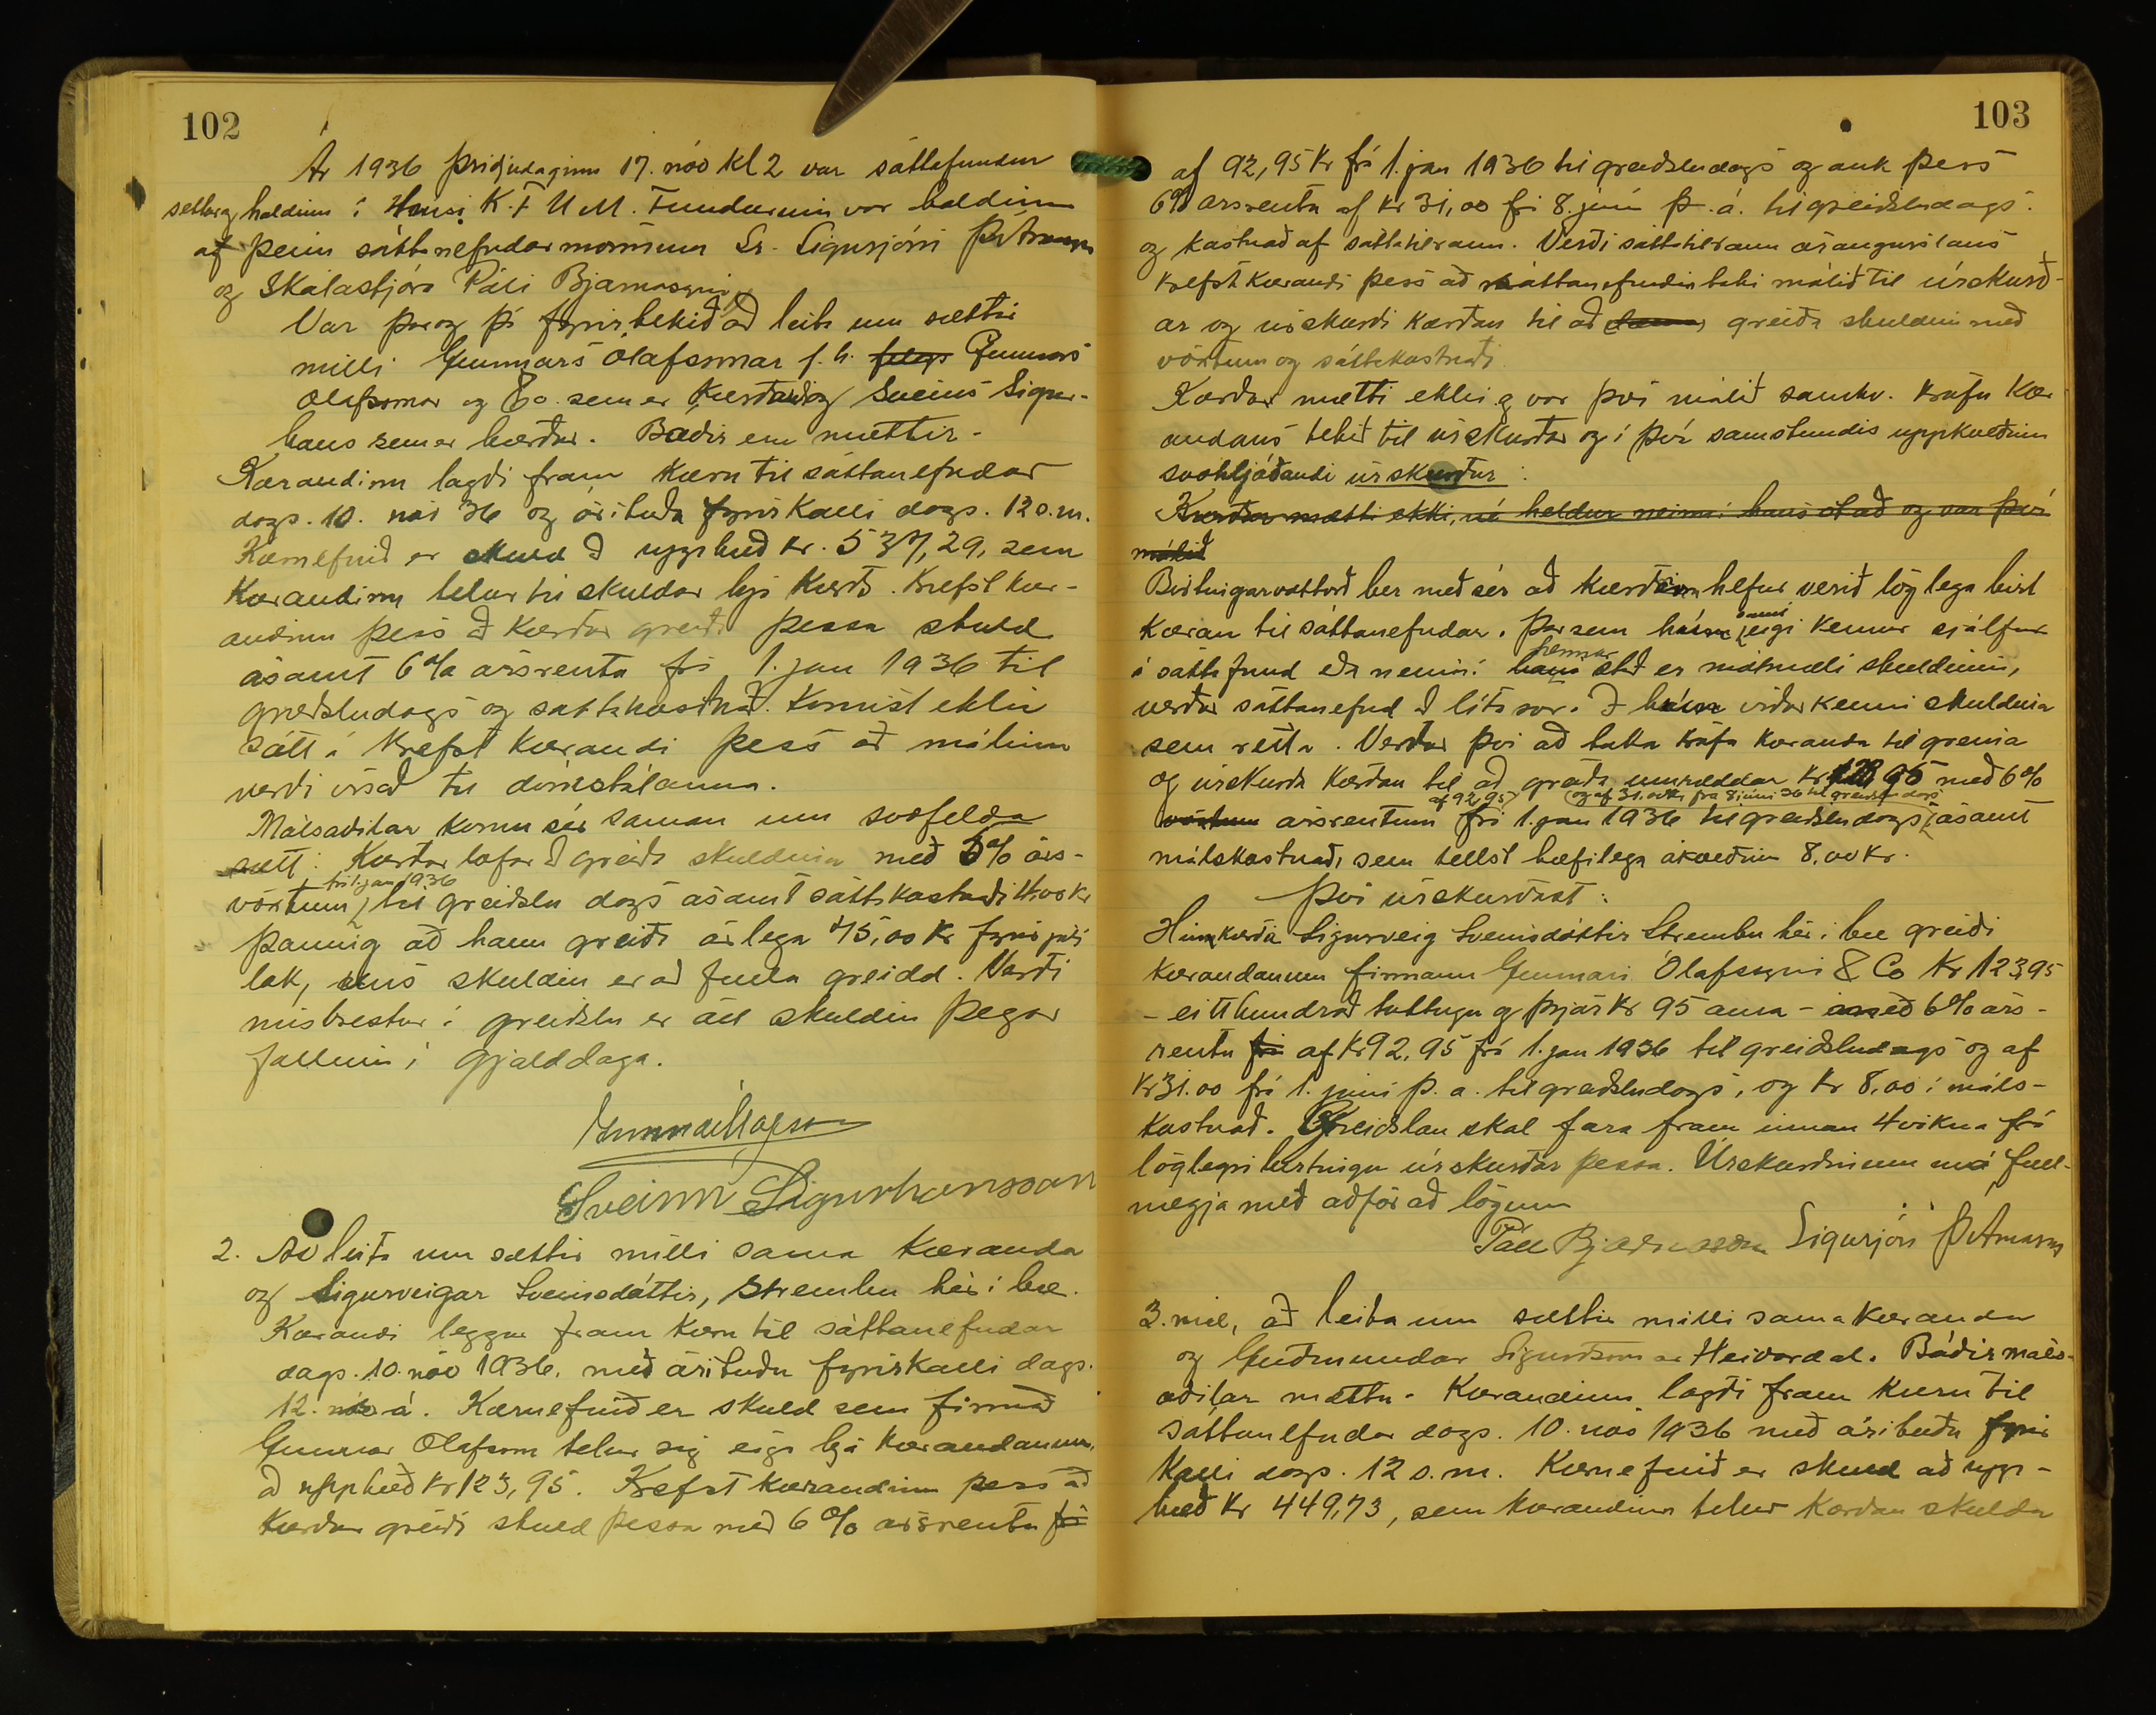 102
Ár 1936 þriðjudaginn 17. nóv kl 2 var sáttafundur
settur og haldinn í Húsi K.F.U.M. Fundurinn var haldinn
af þeim sáttanefndarmönnum Sr. Sigurjóni Þ. Árnasyni
og Skólastjóra Páli Bjarnasyni.
Var þar og þá fyrirtekið að leita um sættir
milli Gunnars Ólafssonar f.h. félags Gunnars
Ólafssonar og Co. sem er kærandi og Sveins Sigur-
hans sem er kærður. Báðir eru mættir.
Kærandinn lagði fram kæru til sáttanefndar
dags. 10. nóv 36 og áritaða fyrirkalli dags. 12 s.m.
Kæruefnið er skuld að upphæð kr. 537,29, sem
kærandinn telur til skuldar hjá kærð. Krefst kær-
andinn þess að kærður greiði þessa skuld
ásamt 6% ársrentu frá 1. jan 1936 til
greiðsludags og sáttakostnað. Komist ekki
sátt á krefst kærandi þess að málinu
verði vísað til dómstólanna.
Málsaðilar komu sér saman um svofelda
sætt: Kærður lofar að greiða skuldina með 6% árs-
frá 1. jan 1936
vöxtum til greiðslu dags ásamt sáttakostnaði 4.00 kr
þannig að hann greiði árlega 45,00 kr fyrir júlí
lok, uns skuldin er að fullu greidd. Verði
misbrestur á greiðslu er öll skuldin þegar
fallin í gjalddaga.
Gunnar Ólafsson
Sveinn Sigurhansson
2. Að leita um sættir milli sama kæranda
og Sigurveigar Sveinsdóttir, Strembu hér í bæ.
Kærandi leggur fram kæru til sáttanefndar
dags. 10. nóv 1936. með áritaðu fyrirkalli dags.
12. nóv á. Kæruefnið er skuld sem firmað
Gunnar Ólafsson telur sig eiga hjá kærandanum,
að upphæð kr 123,95. Krefst kærandinn þess að
kærður greiði skuld þessa með 6% ársrentu frá
103
af 92,95 kr frá 1. jan 1936 til greiðsludags og auk þess
6% ársrentu af kr 31,00 frá 8. júní þ.á. til greiðsludags.
og kostnað af sáttatilraun. Verði sáttatilraun árangurslaus
krefst kærandi þess að sáttanefndin taki málið til úrskurð-
ar og úrskurði kærðan til að greiða skuldina með
vöxtum og sáttakostnaði.
Kærður mætti ekki og var því málið samkv. kröfu kær
andans tekið til úrskurðar og í því samstundis uppkveðinn
svohljóðandi úrskurður:
Kærður mætti ekki, né heldur neinn í hans stað og var því
málið
Birtingarvottorð ber með sér að kærðum hefur verið löglega birt
kæran til sáttanefndar. Þar sem hún eigi kemur sjálf
á sáttafund eða neinn í hennar stað er mótmæli skuldinni,
verður sáttanefnd að líta svo á að hún viðurkenni skuldina
sem rétta. Verður því að taka kröfu kæranda til greina
og úrskurða kærðan til að greiða umræddar kr 123,95 með 6%
af 92,95 og af 31.00 kr frá 8 júní 36 til greiðsludags
vöxtum ársrentum frá 1. jan 1936 til greiðsludags ásamt
málskostnaði sem tellst hæfilega ákveðinn 8,00 kr.
Því úrskurðast:
Hin kærða Sigurveig Sveinsdóttir Strembu hér í bæ greiði
kærandanum firmanu Gunnari Ólafssyni & Co kr 123,95
- eitt hundrað tuttugu og þrjár kr 95 aura - með 6% árs-
rentu frá af kr 92,95 frá 1. jan 1936 til greiðsludags og af
kr 31.00 frá 1. júní þ.á. til greiðsludags, og kr 8,00 í máls-
kostnað. Greiðslan skal fara fram innan 4 vikna frá
löglegri birtingu úrskurðar þessa. Úrskurðinum má full-
nægja með aðför að lögum
Páll Bjarnason Sigurjón Þ. Árnason
3. mál, að leita um sættir milli sama kæranda
og Guðmundar Sigurðssonar Heiðardal. Báðir máls-
aðilar mættu. Kærandinn lagði fram kæru til
sáttanefndar dags. 10. nóv 1936 með áritaðu fyrir
kalli dags. 12 s.m. Kæruefnið er skuld að upp-
hæð kr 449,73, sem kærandinn telur kærðan skulda